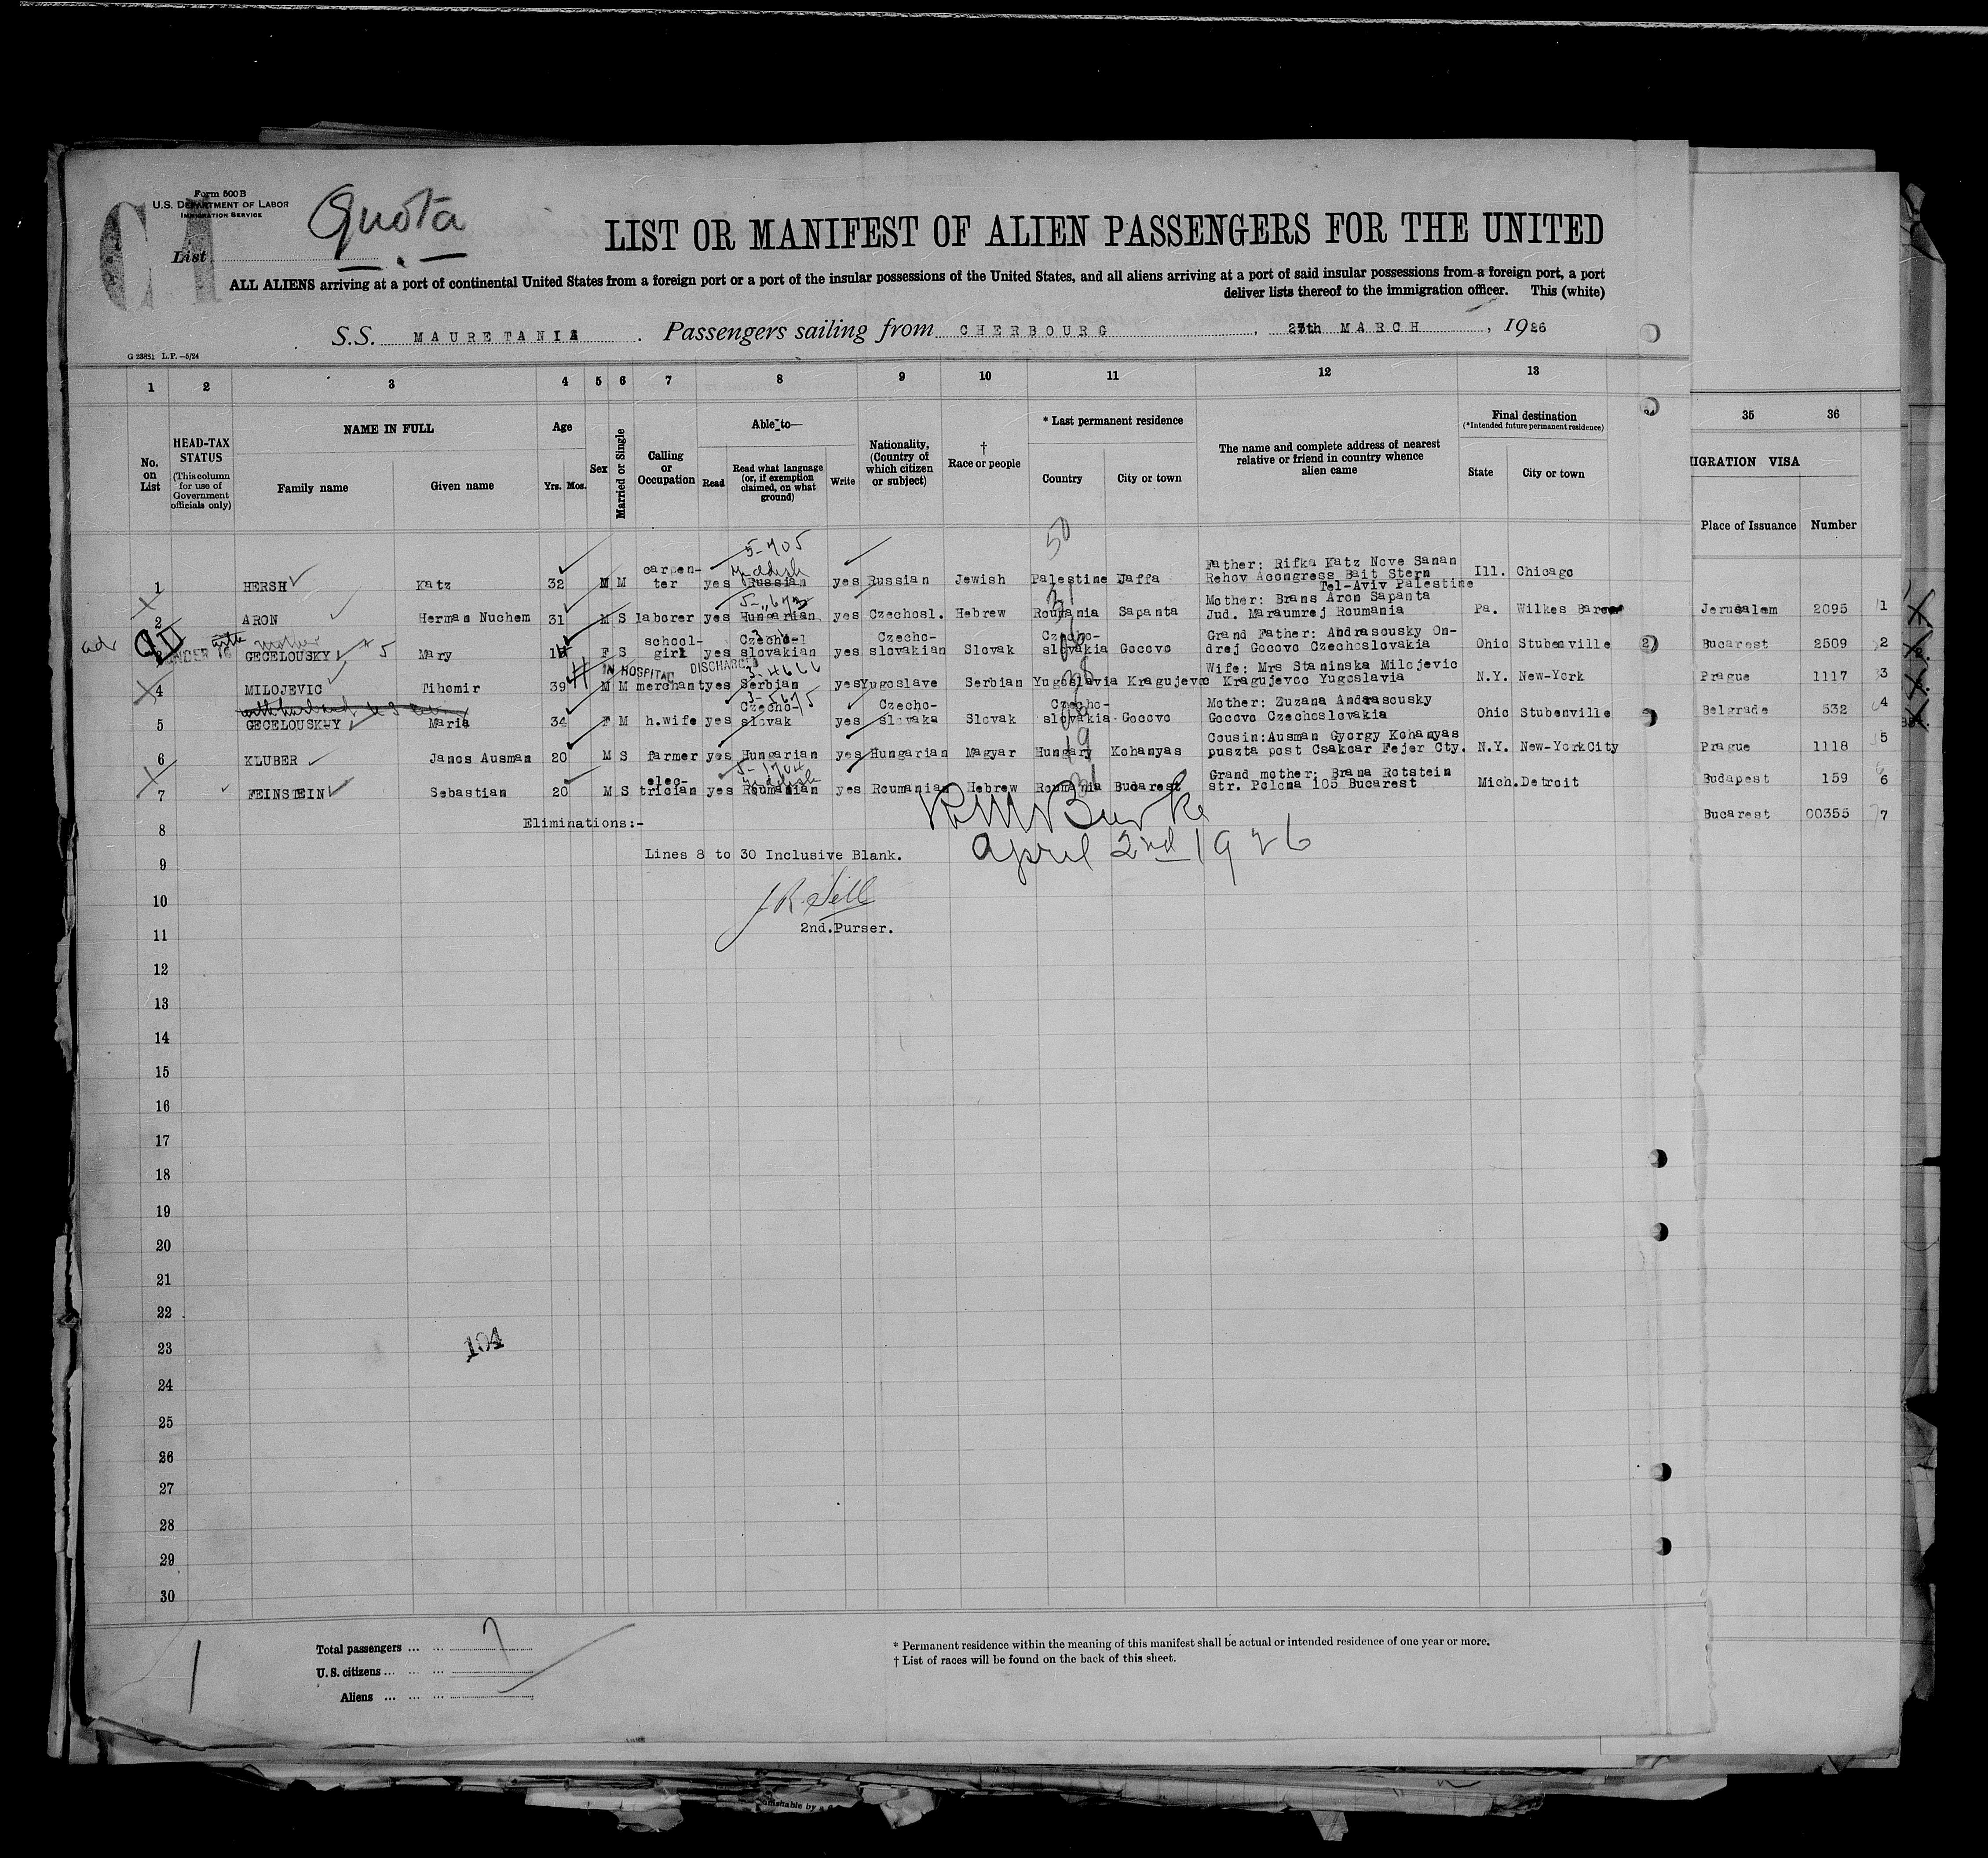 Form 500 B
U.S. DEPARTMENT OF LABOR
IMMIGRATION SERVICE
Quota
List
LIST OR MANIFEST OF ALIEN PASSENGERS FOR THE UNITED
ALL ALIENS arriving at a port of continental United States from a foreign port or a port of the insular possessions of the United States, and all aliens arriving at a port of said insular possessions from a foreign port, a port
deliver lists thereof to the immigration officer. This (white)
S.S. MAURETANIA . Passengers sailing from CHERBOURG , 27th MARCH , 1926
G 23851 L.P.—5/24
1 2 3 4 5 6 7 8 9 10 11 12 13 35 36
No. on List
HEAD-TAX STATUS
(This column for use of Government officials only)
NAME IN FULL
Family name Given name
Age
Yrs. Mos.
Sex
Married or Single
Calling or Occupation
Able to—
Read
Read what language (or, if exemption claimed, on what ground)
Write
Nationality, (Country of which citizen or subject)
† Race or people
* Last permanent residence
Country City or town
The name and complete address of nearest relative or friend in country whence alien came
Final destination
(*Intended future permanent residence)
State City or town
IGRATION VISA
Place of Issuance Number
50
5-705
1 HERSH Katz 32 M M carpen-ter yes Russian Yiddish yes Russian Jewish Palestine Jaffa Father: Rifka Katz Nove Sanan Rehov Acongress Bait Stern Tel-Aviv Palestine Ill. Chicago
2 ARON Herman Nuchem 31 M S laborer yes Hungarian yes Czechosl. Hebrew Roumania Sapanta Mother: Brans Aron Sapanta Jud. Maraumrej Roumania Pa. Wilkes Barre Jerusalem 2095 1
3 UNDER 16 with mother GECELOUSKY Mary F S school-girl yes Czecho-slovakian yes Czecho-slovakian Slovak Czecho-slovakia Gocovo Grand Father: Andrasousky On-drej Gocovo Czechoslovakia Ohio Stubenville Bucarest 2509 2
IN HOSPITAL DISCHARGED
4 MILOJEVIC Tihomir 39 M M merchant yes Serbian yes Yugoslave Serbian Yugoslavia Kragujevoc Wife: Mrs Staninska Milojevic Kragujevoc Yugoslavia N.Y. New-York Prague 1117 3
5 GECELOUSKY Maria 34 F M h.wife yes Czecho-slovak yes Czecho-slovaka Slovak Czecho-slovakia Gocovo Mother: Zuzana Andrasousky Gocovo Czechoslovakia Ohio Stubenville Belgrade 532 4
6 KLUBER Janos Ausman 20 M S farmer yes Hungarian yes Hungarian Magyar Hungary Kohanyas Cousin:Ausman Gyorgy Kohanyas puszta post Csakoar Fejer Cty. N.Y. New-YorkCity Prague 1118 5
7 FEINSTEIN Sebastian 20 M S elec-trician yes Roumanian Yiddish yes Roumanian Hebrew Roumania Bucarest Grand mother: Brana Rotstein str. Polona 105 Bucarest Mich. Detroit Budapest 159 6
Bucarest 00355 7
8 Eliminations:-
RM Burke
9 Lines 8 to 30 Inclusive Blank.
April 2nd 1926
10
J R Sell
11 2nd.Purser.
12
13
14
15
16
17
18
19
20
21
22
23
104
24
25
26
27
28
29
30
Total passengers ... ... 7
U.S. citizens ... ... ...
Aliens ... ... ...
* Permanent residence within the meaning of this manifest shall be actual or intended residence of one year or more.
† List of races will be found on the back of this sheet.